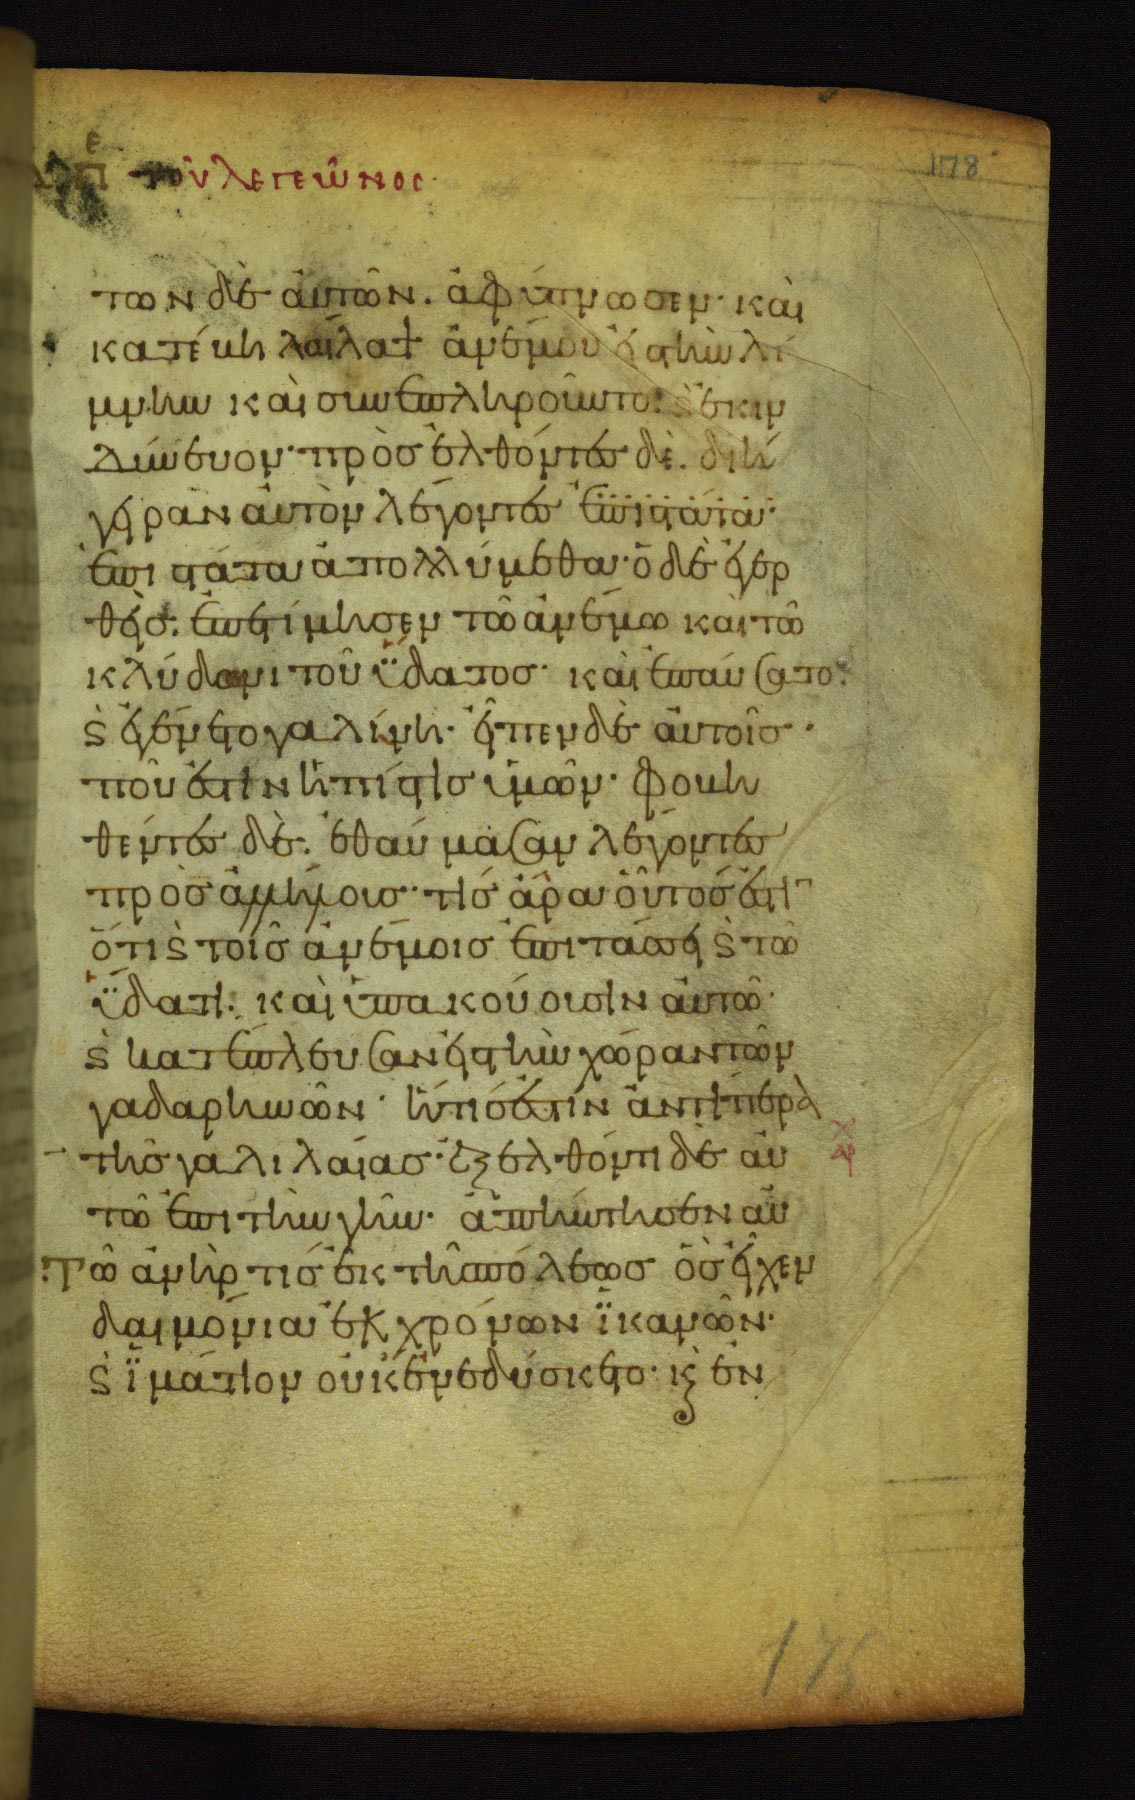 τοῦ λεγεῶνος
178
των δὲ αὐτῶν. ἀφύπνωσεν· καὶ
κατέβη λαίλαψ ἀνέμου εἰς τὴν λί
μνην καὶ συνεπληροῦντο· ϗ ἐκιν
δύνευον· προσελθόντες δὲ. διή
γειραν αὐτὸν λέγοντες ἐπιστάτα·
ἐπιστάτα ἀπολλύμεθα· ὁ δὲ ἐγερ
θεὶς. ἐπετίμησεν τῶ ἀνέμω καὶ τῶ
κλύδωνι τοῦ ὕδατος· καὶ ἐπαύσατο·
ϗ ἐγένετο γαλήνη· εἶπεν δὲ αὐτοῖς·
ποῦ ἐστιν ἡ πίστις ὑμῶν· φοβη
θέντες δὲ. ἐθαύμασαν λέγοντες
πρὸς ἀλλήλους· τίς ἄρα οὗτός ἐστι
ὅτι ϗ τοῖς ἀνέμοις ἐπιτάσσει ϗ τῶ
ὕδατι· καὶ ὑπακούουσιν αὐτῶ·
ϗ κατέπλευσαν εἰς τὴν χώραν τῶν
γαδαρηνῶν· ἥτις ἐστὶν ἀντιπέρα
τῆς γαλιλαίας· ἐξελθόντι δὲ αὐ
τῶ ἐπὶ τὴν γῆν· ἀπήντησεν αὐ
τῶ ἀνήρ τις ἐκ τῆς πόλεως ὃς εἶχεν
δαιμόνια ἐκ χρόνων ἱκανῶν·
ϗ ἱμάτιον οὐκ ἐνεδύσκετο· ϗ ἐν
175